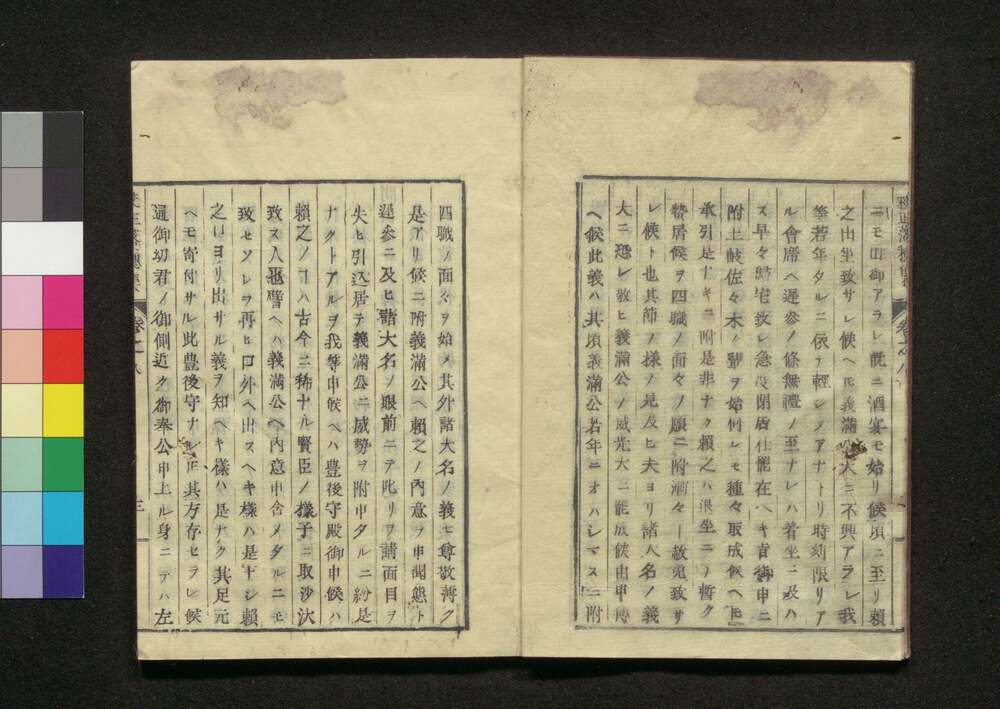 ニモ出御アラレ既ニ酒宴モ始リ候頃ニ至リ頼
之出坐致サレ候ヘ𪜈義満公大ニ不興アラレ我
等若年タルニ依テ輕シメアナトリ時刻限リア
ル會席ヘ遅参ノ條無禮ノ至ナレハ着坐ニ及ハ
ス早々歸宅致シ急度閉居仕罷在ヘキ旨御申ニ
附土岐佐々木ノ輩ヲ始何レモ種々取成候ヘ𪜈
承引是ナキニ附是非ナク頼之ハ退坐ニテ暫ク
蟄居候ヲ四職ノ面々ノ願ニ附漸々ト赦免致サ
レ候ト也其節ノ様子見及ヒ夫ヨリ諸大名ノ義
大ニ恐レ敬ヒ義満公ノ威光大ニ罷成候由申傳
ヘ候此義ハ其頃義満公若年ニオハシマスニ附
四職ノ面々ヲ始メ其外諸大名ノ義モ尊敬薄ク
是アリ候ニ附義満公ヘ頼之ノ內意ヲ申聞態ト
遅参ニ及ヒ諸大名ノ眼前ニテ叱リヲ請面目ヲ
失ヒ引込居テ義満公ニ威勢ヲ附申タルニ紛是
ナクトアルヲ我等申候ヘハ豊後守殿御申候ハ
頼之ノ𪜈ハ古今ニ稀ナル賢臣ノ様子ニ取沙汰
致ス人也譬ヘハ義満公ヘ內意申含メタルニモ
致セソレヲ再ヒ口外ヘ出スヘキ様ハ是ナシ頼
之ノ口ヨリ出サル義ヲ知ヘキ様ハ是ナク其足元
ヘモ寄付サル此豊後守ナレ𪜈其方存セラレ候
通御幼君ノ御側近ク御奉公申上ル身ニテハ左
卷之八
三